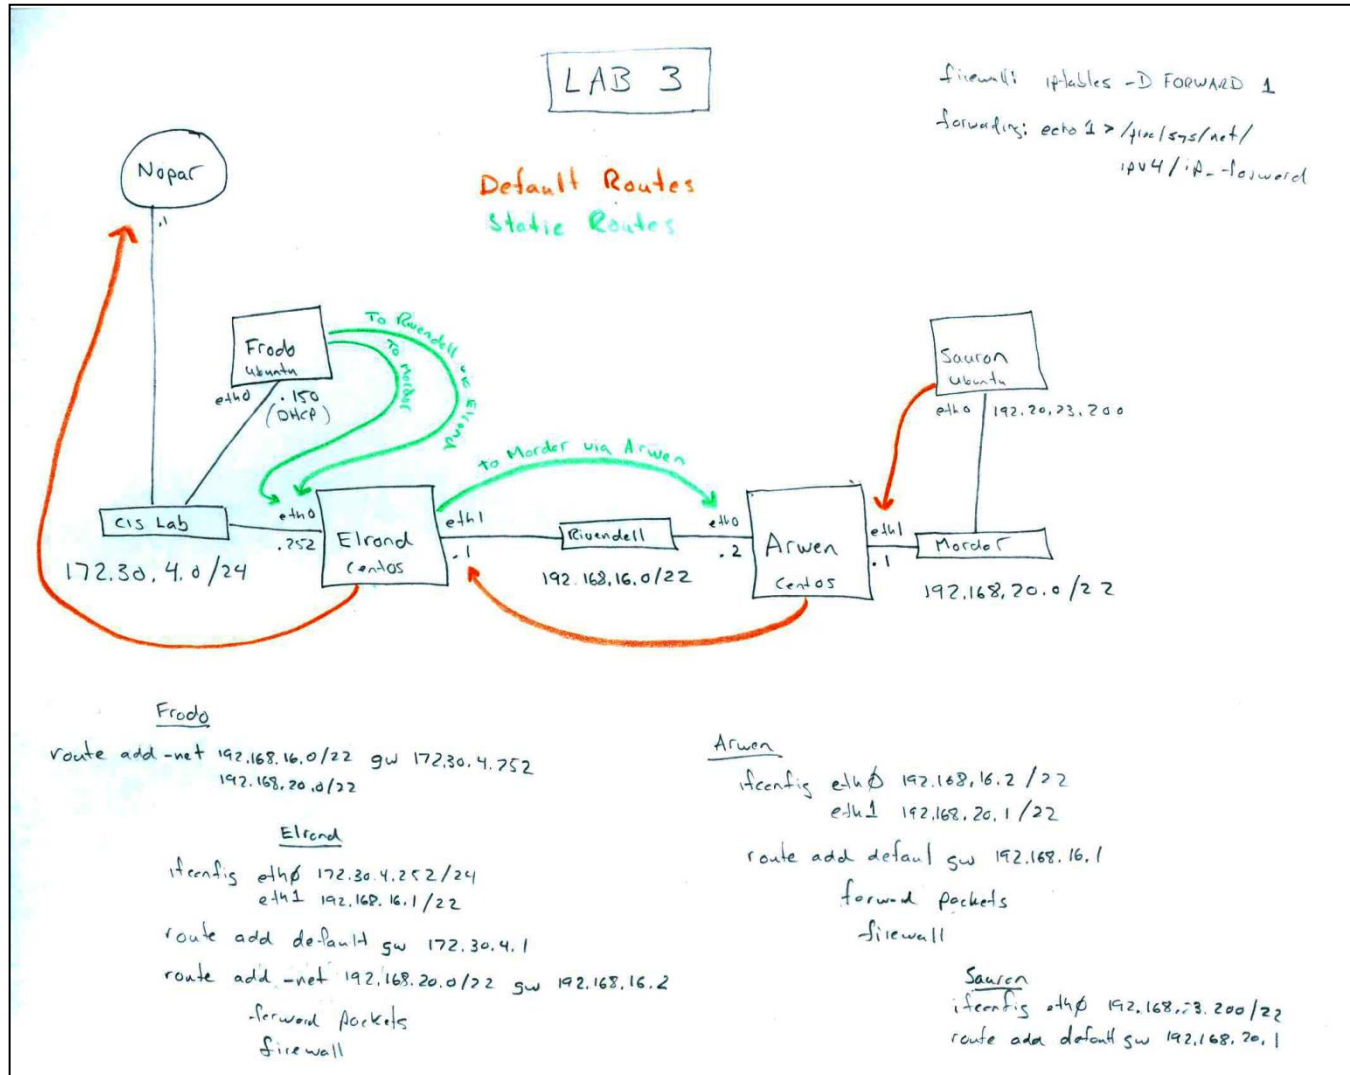 LAB 3
firewall: iptables -D FORWARD 1
forwarding: echo 1 > /proc/sys/net/
ipv4/ip_forward
Default Routes
Static Routes
Nopar
.1
Frodo
Ubuntu
eth0
.150
(DHCP)
To Rivendell via Elrond
To Mordor
Sauron
Ubuntu
eth0 192.20.23.200
to Mordor via Arwen
CIS Lab
172.30.4.0/24
eth0
.252
Elrond
CentOS
eth1
.1
Rivendell
192.168.16.0/22
eth0
.2
Arwen
CentOS
eth1
.1
Mordor
192.168.20.0/22
Frodo
route add -net 192.168.16.0/22 gw 172.30.4.252
192.168.20.0/22
Elrond
ifconfig eth0 172.30.4.252/24
eth1 192.168.16.1/22
route add default gw 172.30.4.1
route add -net 192.168.20.0/22 gw 192.168.16.2
forward packets
firewall
Arwen
ifconfig eth0 192.168.16.2/22
eth1 192.168.20.1/22
route add defaul gw 192.168.16.1
forward packets
firewall
Sauron
ifconfig eth0 192.168.23.200/22
route add default gw 192.168.20.1